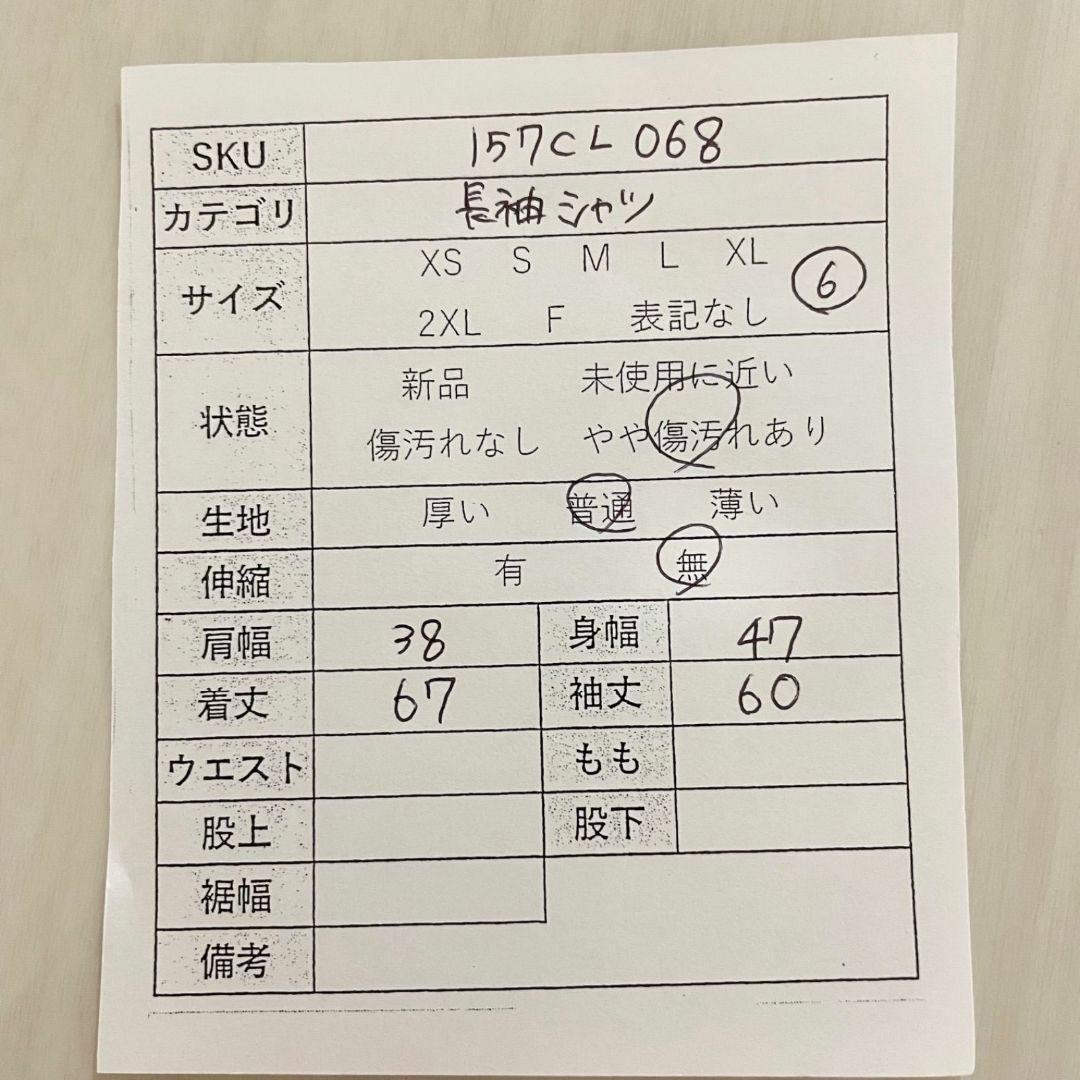 SKU 157CL068
カテゴリ 長袖シャツ
サイズ XS S M L XL 6
2XL F 表記なし
状態 新品 未使用に近い
傷汚れなし やや傷汚れあり
生地 厚い 普通 薄い
伸縮 有 無
肩幅 38 身幅 47
着丈 67 袖丈 60
ウエスト もも
股上 股下
裾幅
備考